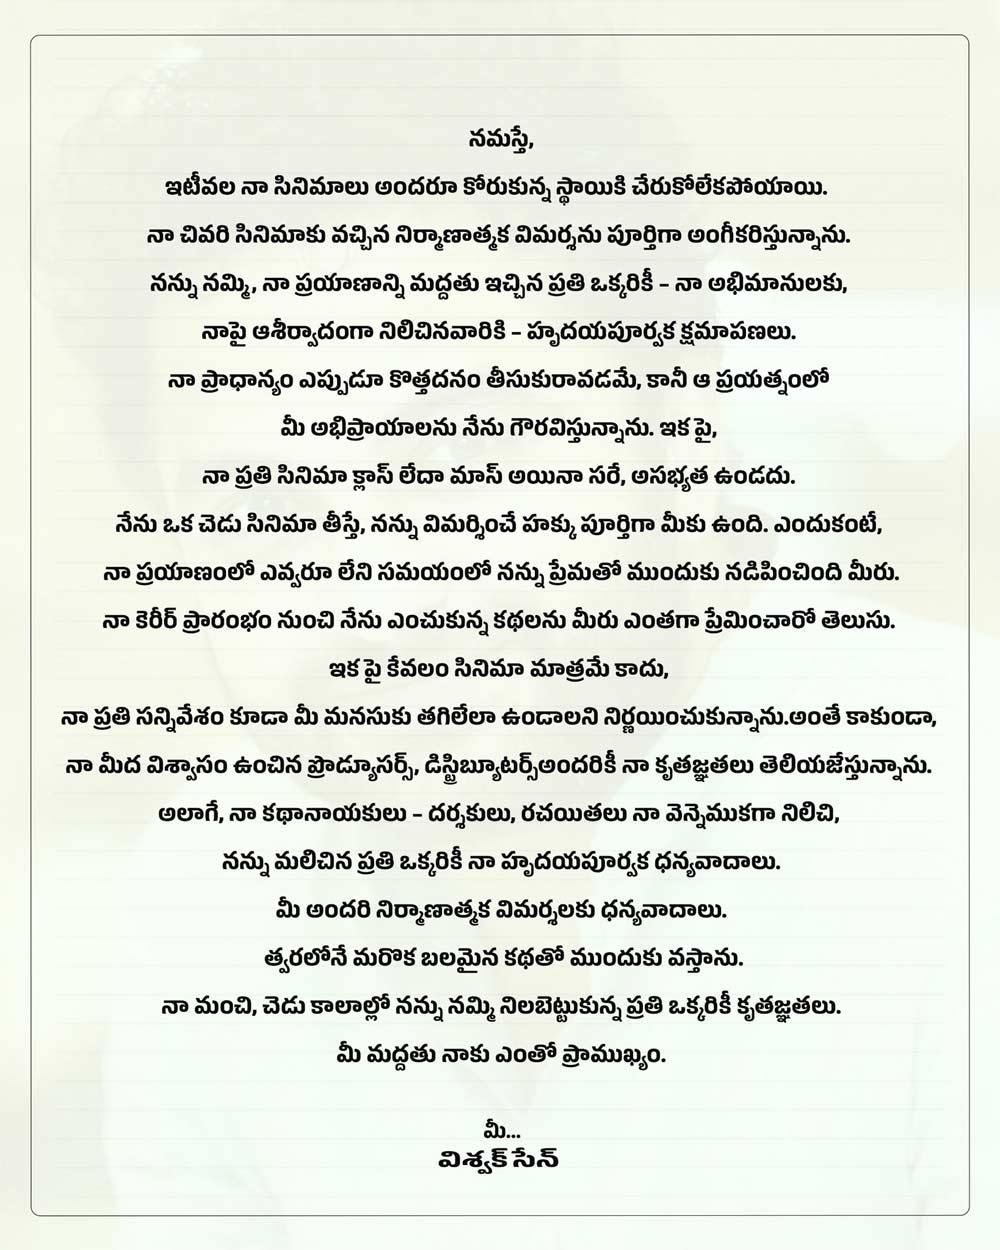 నమస్తే,
ఇటీవల నా సినిమాలు అందరూ కోరుకున్న స్థాయికి చేరుకోలేకపోయాయి.
నా చివరి సినిమాకు వచ్చిన నిర్మాణాత్మక విమర్శను పూర్తిగా అంగీకరిస్తున్నాను.
నన్ను నమ్మి, నా ప్రయాణాన్ని మద్దతు ఇచ్చిన ప్రతి ఒక్కరికీ – నా అభిమానులకు,
నాపై ఆశీర్వాదంగా నిలిచినవారికి – హృదయపూర్వక క్షమాపణలు.
నా ప్రాధాన్యం ఎప్పుడూ కొత్తదనం తీసుకురావడమే, కానీ ఆ ప్రయత్నంలో
మీ అభిప్రాయాలను నేను గౌరవిస్తున్నాను. ఇక పై,
నా ప్రతి సినిమా క్లాస్ లేదా మాస్ అయినా సరే, అసభ్యత ఉండదు.
నేను ఒక చెడు సినిమా తీస్తే, నన్ను విమర్శించే హక్కు పూర్తిగా మీకు ఉంది. ఎందుకంటే,
నా ప్రయాణంలో ఎవ్వరూ లేని సమయంలో నన్ను ప్రేమతో ముందుకు నడిపించింది మీరు.
నా కెరీర్ ప్రారంభం నుంచి నేను ఎంచుకున్న కథలను మీరు ఎంతగా ప్రేమించారో తెలుసు.
ఇక పై కేవలం సినిమా మాత్రమే కాదు,
నా ప్రతి సన్నివేశం కూడా మీ మనసుకు తగిలేలా ఉండాలని నిర్ణయించుకున్నాను.అంతే కాకుండా,
నా మీద విశ్వాసం ఉంచిన ప్రొడ్యూసర్స్, డిస్ట్రిబ్యూటర్స్అందరికీ నా కృతజ్ఞతలు తెలియజేస్తున్నాను.
అలాగే, నా కథానాయకులు – దర్శకులు, రచయితలు నా వెన్నెముకగా నిలిచి,
నన్ను మలిచిన ప్రతి ఒక్కరికీ నా హృదయపూర్వక ధన్యవాదాలు.
మీ అందరి నిర్మాణాత్మక విమర్శలకు ధన్యవాదాలు.
త్వరలోనే మరొక బలమైన కథతో ముందుకు వస్తాను.
నా మంచి, చెడు కాలాల్లో నన్ను నమ్మి నిలబెట్టుకున్న ప్రతి ఒక్కరికీ కృతజ్ఞతలు.
మీ మద్దతు నాకు ఎంతో ప్రాముఖ్యం.
మీ...
విశ్వక్ సేన్